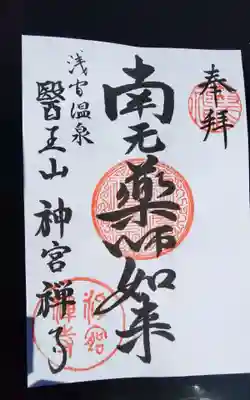 奉拝
南无薬師如来
浅間温泉
醫王山 神宮禅寺